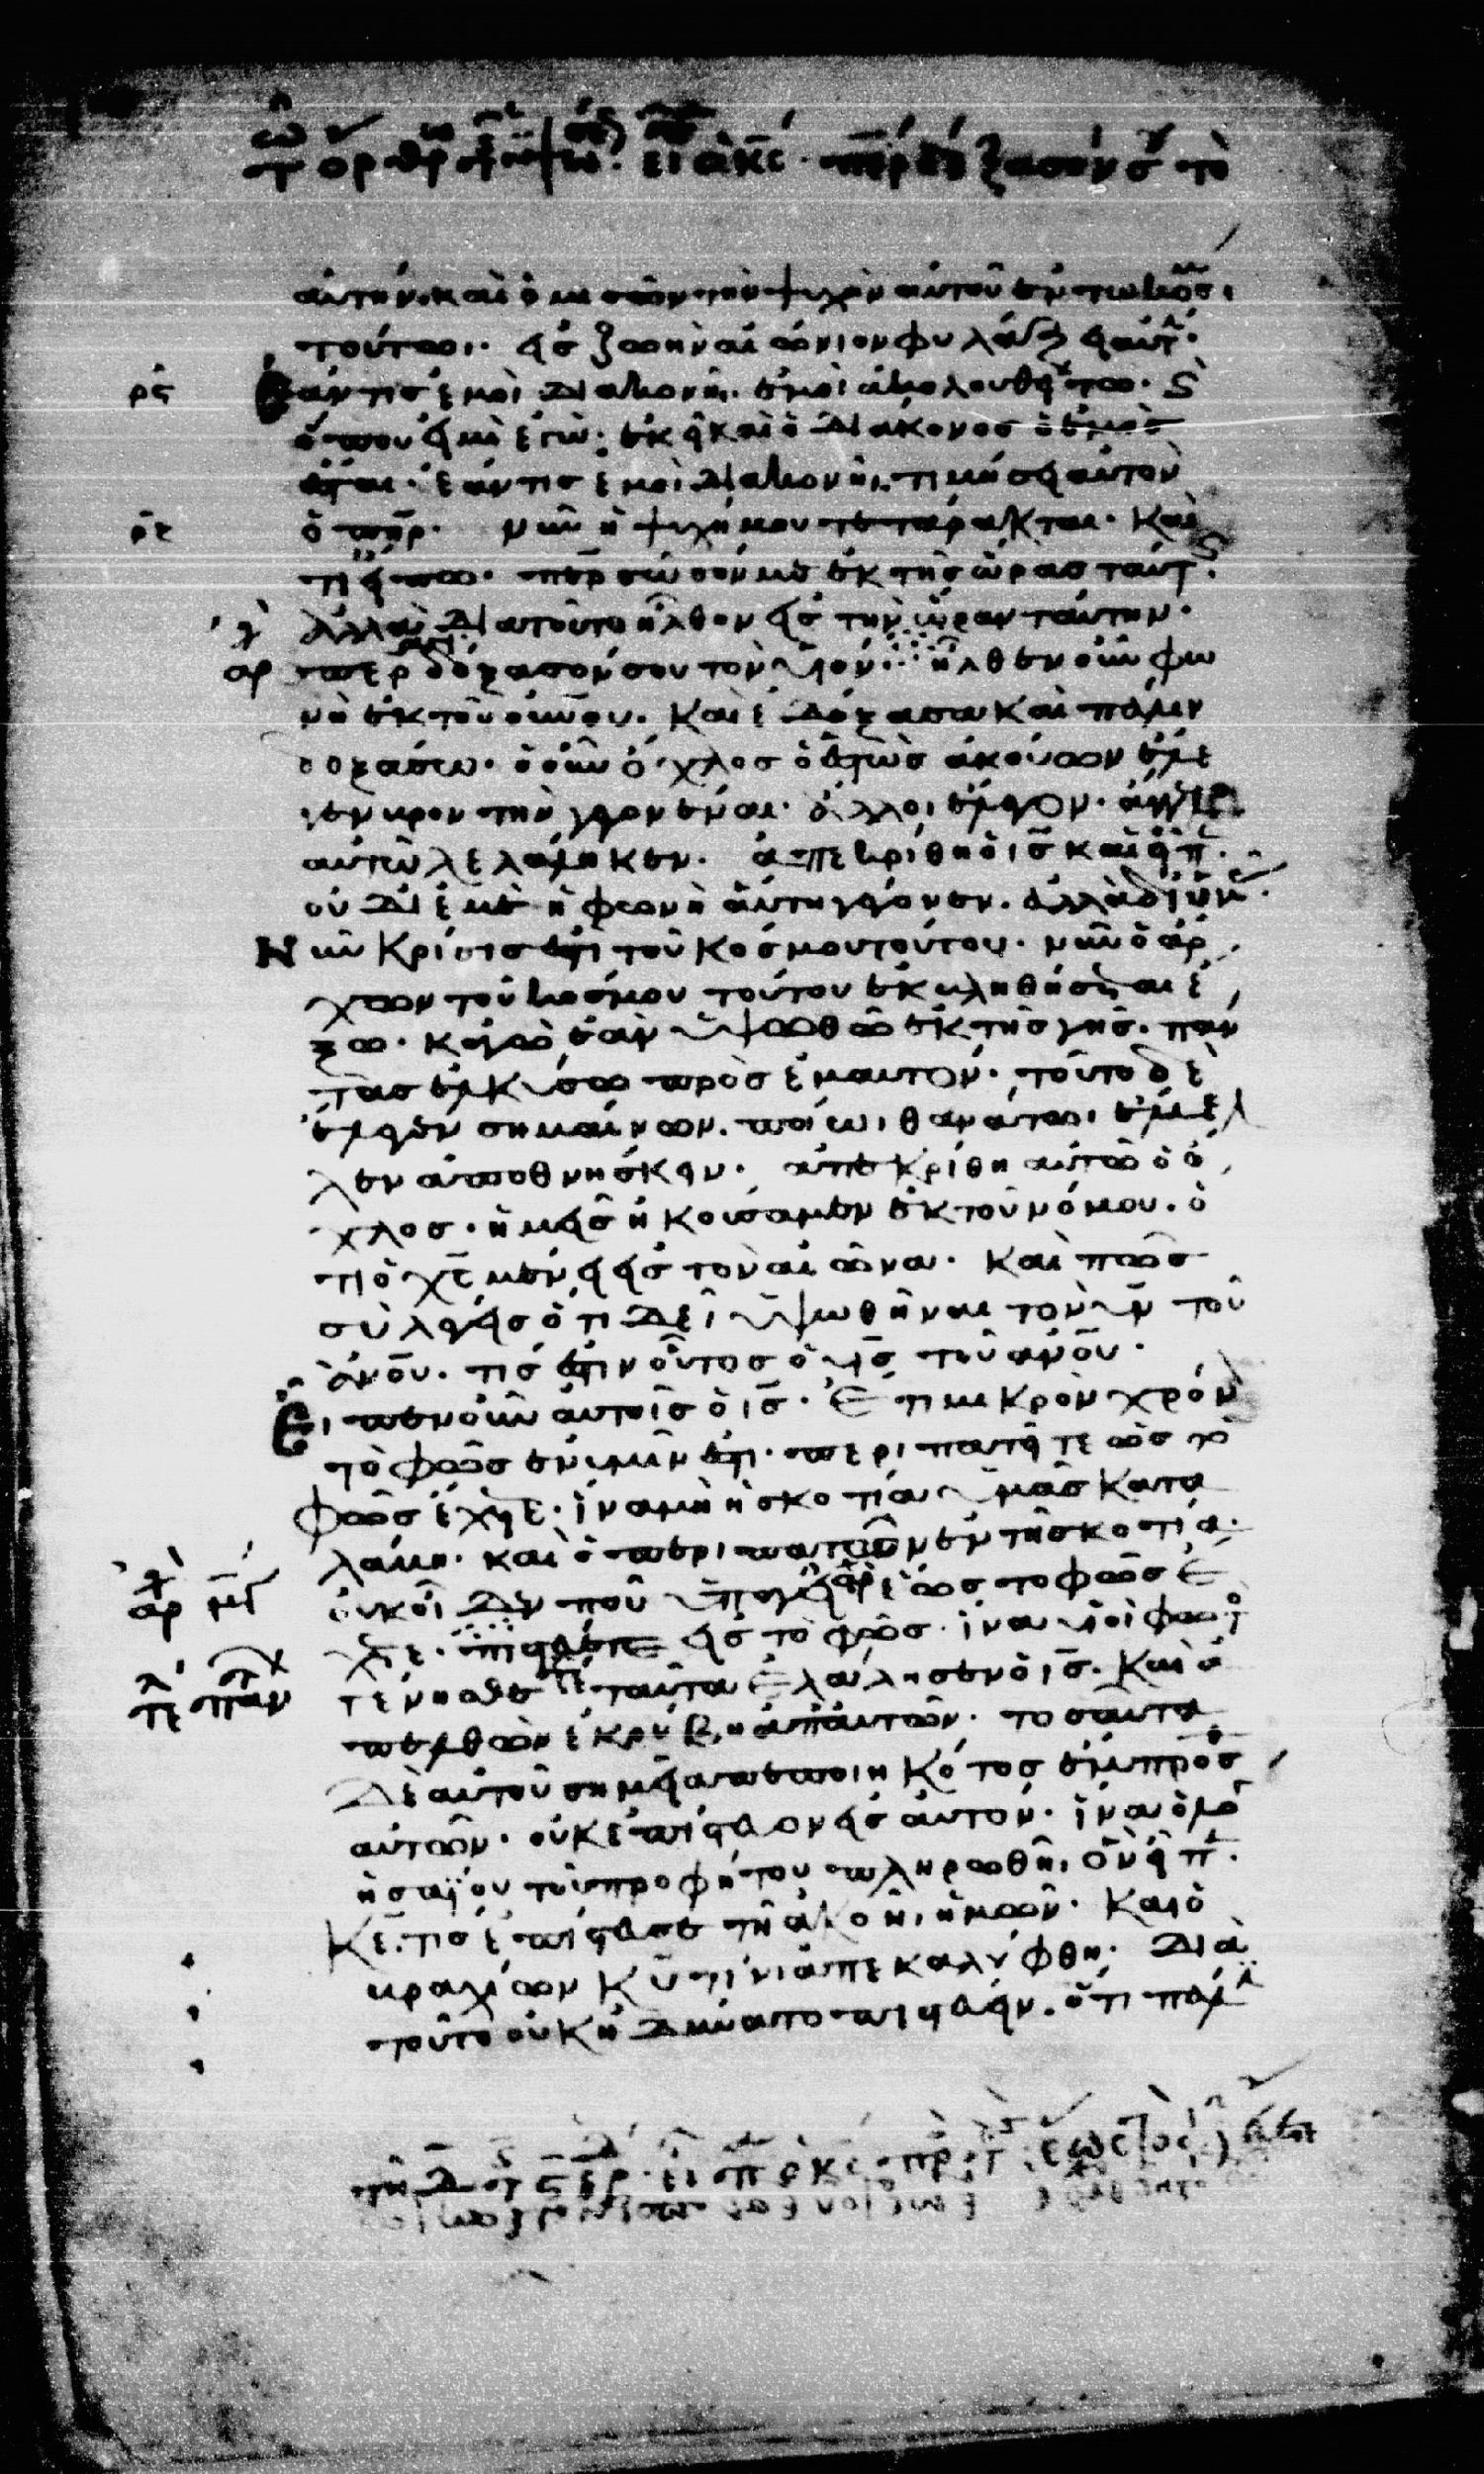 αὐτήν. καὶ ὁ μισῶν τὴν ψυχὴν αὐτοῦ ἐν τῷ κόσμωι
τούτωι. εἰς ζωὴν αἰώνιον φυλάξει αὐτ.
ρϛ Εάν τις ἐμοὶ διακονῆι. ἐμοὶ ἀκολουθείτω. καὶ
ὅπου εἰμὶ ἐγώ. ἐκεῖ καὶ ὁ διάκονος ὁ ἐμὸς
ἔσται. ἐάν τις ἐμοὶ διακονῆι. τιμήσει αὐτὸν
ὁ πηρ. νῦν ἡ ψυχή μου τετάρακται. καὶ
τί εἴπω. περ σῶσόν με ἐκ τῆς ὥρας ταύτ.
ἀλλὰ διατοῦτο ἦλθον εἰς τὴν ὥραν ταύτην.
αρ περ δόξασόν σου τὸν υἱόν. ἦλθεν οὖν φω
νὴ ἐκ τοῦ οὐνου. καὶ ἐδόξασα καὶ πάλιν
δοξάσω. ὁ οὖν ὄχλος ὁ ἑστὼς ἀκούων ἔλε
γεν βροντὴν γεγονέναι. ἄλλοι ἔλεγον. ἄγγελ
αὐτῶ λελάληκεν. ἀπεκρίθη ὁ ις καὶ εἶπ.
οὐ δι ἐμὲ ἡ φωνὴ αὕτη γέγονεν. ἀλλὰ δι ὑμ.
Νῦν κρίσις ἐστὶ τοῦ κόσμου τούτου. νῦν ὁ ἄρ
χων τοῦ κόσμου τούτου ἐκβληθήσεται ἔ
ξω. κἀγὼ ἐὰν ὑψωθῶ ἐκ τῆς γῆς. πάν
τας ἑλκύσω πρὸς ἐμαυτόν. τοῦτο δὲ
ἔλεγεν σημαίνων. ποίωι θανάτωι ἔμελ
λεν ἀποθνήσκειν. ἀπεκρίθη αὐτῶ ὁ ὄ
χλος. ἡμεῖς ἠκούσαμεν ἐκ τοῦ νόμου. ὅ
τι ὁ χς μένει εἰς τὸν αἰῶνα. καὶ πῶς
σὺ λέγεις ὅτι δεῖ ὑψωθῆναι τὸν υν τοῦ
ανου. τίς ἐστιν οὗτος ὁ υς τοῦ ανου.
Εἶπεν οὖν αὐτοῖς ὁ ις. Ετι μικρὸν χρόν
τὸ φῶς ἐν ὑμῖν ἐστι. περιπατεῖτε ὡς τὸ
φῶς ἔχετε. ἵνα μὴ ἡ σκοτία ὑμᾶς κατα
λάβη. καὶ ὁ περιπατῶν ἐν τῆ σκοτία.
οὐκ οἶδεν ποῦ ὑπάγει ἕως τὸ φῶς ἔ
χετε. πιστεύετε εἰς τὸ φῶς. ἵνα υἱοὶ φωτὸ
γένησθε ταῦτα ἐλάλησεν ὁ ις. καὶ ἀ
πελθὼν ἐκρύβη ἀπ αὐτῶν. τοσαῦτα
δὲ αὐτοῦ σημεῖα πεποιηκότος ἔμπροσ
αὐτῶν. οὐκ ἐπίστευον εἰς αὐτόν. ἵνα ὁ λό
ἠσαΐου τοῦ προφήτου πληρωθῆι. ὃν εἶπ.
Κε. τίς ἐπίστευσε τῆ ἀκοῆι ἡμῶν. καὶ ὁ
βραχίων κυ τίνι ἀπεκαλύφθη. Διὰ
τοῦτο οὐκ ἠδύναντο πιστεύειν. ὅτι πάλ